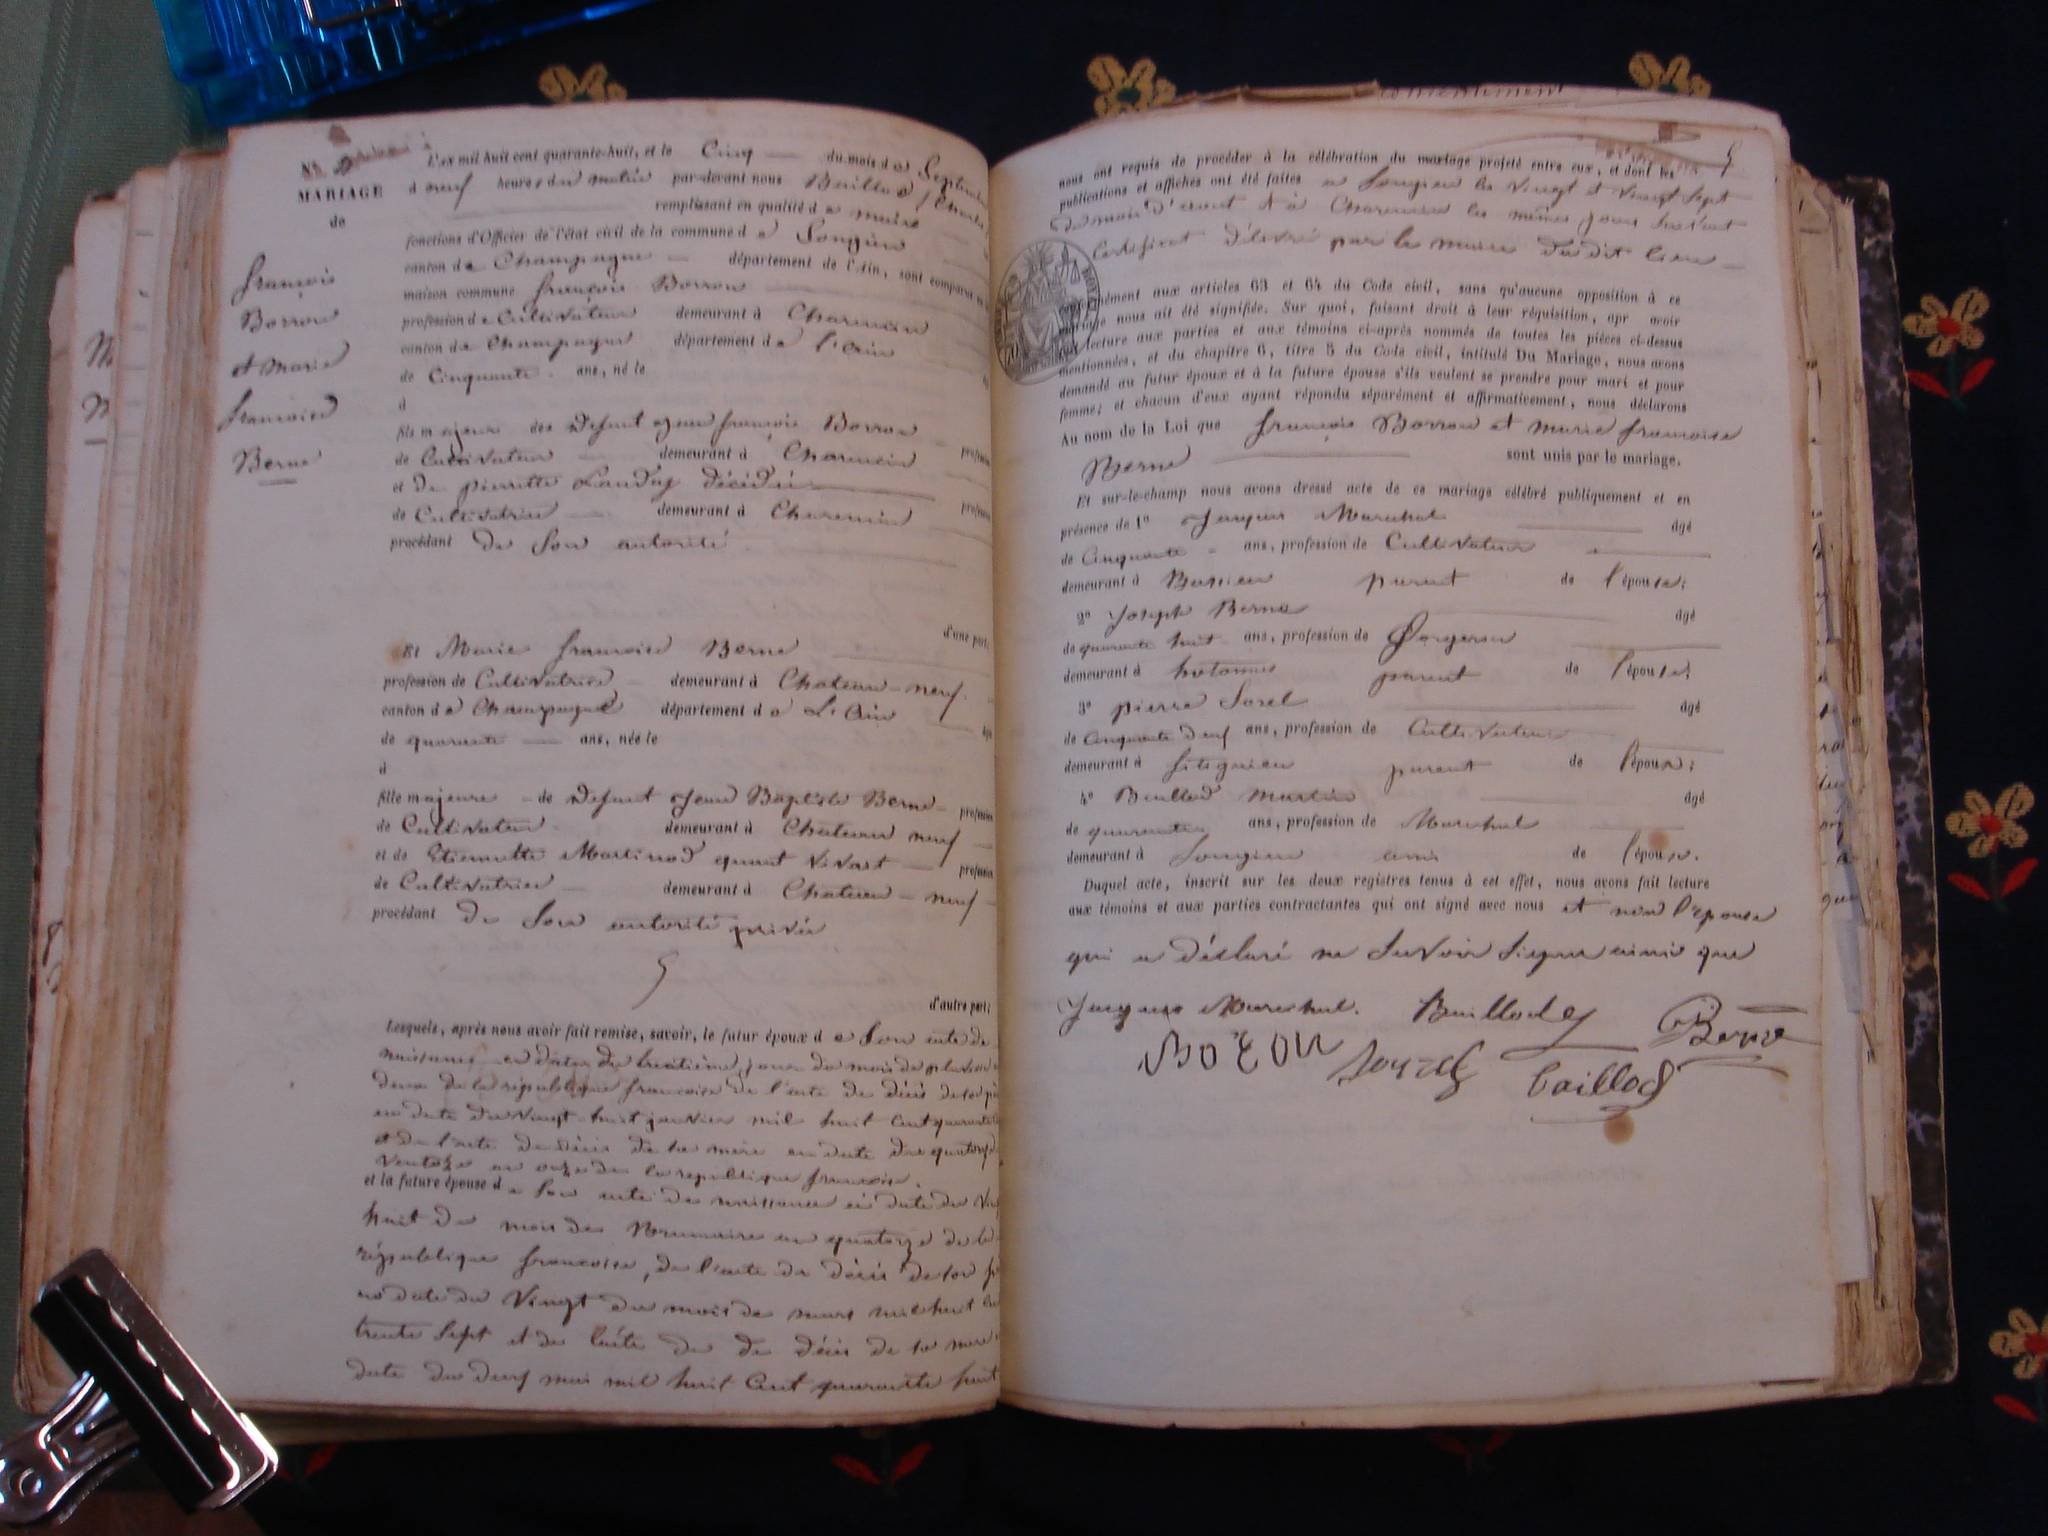 MARIAGE
de
françois
Borron
et Marie
francoise
Berne
L'an mil huit cent quarante-huit, et le Cinq du mois de Septembre
à neuf heures du matin par-devant nous Baillod Charles
remplissant en qualité de maire
fonctions d'Officier de l'état civil de la commune de Songieu
canton de Champagne département de l'Ain, sont comparus en
maison commune françois Borron
profession de Cultivateur demeurant à Charencin
canton de Champagne département de l'Ain
de Cinquante ans, né le
à
fils majeur des défunt Jean françois Borron
de Cultivateur demeurant à Charencin
et de pierrette Landaz décédée
de Cultivatrice demeurant à Charencin
procédant de son autorité
d'une part;
Et Marie francoise Berne
profession de Cultivatrice demeurant à Chateau-neuf
canton de Champagne département de L'Ain
de quarante ans, née le
à
fille majeure de défunt Jean Baptiste Berne profession
de Cultivateur demeurant à Chateau neuf
et de Etiennette Martinod quant vivait profession
de Cultivatrice demeurant à Chateau-neuf
procédant de son autorité privée
d'autre part;
Lesquels, après nous avoir fait remise, savoir, le futur époux de son acte de
naissance en date du treizième jour du mois de pluviose
deux de la république francoise de l'acte de décès de son père
en date du vingt-huit janvier mil huit cent quarante
et de l'acte de décès de sa mère en date du quatorze
Ventose an onze de la republique francoise.
et la future épouse de son acte de naissance en date du vingt
huit du mois de Brumaire an quatorze de la
république francoise, de l'acte de décès de son père
en date du Vingt du mois de mars mil huit cent
trente sept et de l'acte de de décès de sa mère
date du neuf mai mil huit cent quarante huit
nous ont requis de procéder à la célébration du mariage projeté entre eux, et dont les
publications et affiches ont été faites a Songieu les Vingt et Vingt Sept
du mois d'aout et à Charencin les mêmes jours suivant
Certificat délivré par le maire dudit lieu
conformément aux articles 63 et 64 du Code civil, sans qu'aucune opposition à ce
mariage nous ait été signifiée. Sur quoi, faisant droit à leur réquisition, apr avoir
lecture aux parties et aux témoins ci-après nommés de toutes les pièces ci-dessus
mentionnées, et du chapitre 6, titre 5 du Code civil, intitulé Du Mariage, nous avons
demandé au futur époux et à la future épouse s'ils veulent se prendre pour mari et pour
femme; et chacun d'eux ayant répondu séparément et affirmativement, nous déclarons
Au nom de la Loi que françois Borron et marie francoise
Berne sont unis par le mariage.
Et sur-le-champ nous avons dressé acte de ce mariage célébré publiquement et en
présence de 1º Jacques Marechal âgé
de Cinquante ans, profession de Cultivateur
demeurant à parent de l'épouse;
2º Joseph Berne âgé
de quarante huit ans, profession de
demeurant à hotonnes parent de l'épouse;
3º pierre Sorel âgé
de Cinquante neuf ans, profession de Cultivateur
demeurant à parent de l'époux;
4º Baillod Martin âgé
de quarante ans, profession de Marechal
demeurant à Songieu ami de l'époux.
Duquel acte, inscrit sur les deux registres tenus à cet effet, nous avons fait lecture
aux témoins et aux parties contractantes qui ont signé avec nous et non l'épouse
qui a déclaré ne savoir signer ainsi que
Jacques Marechal. Baillod Berne
Baillod